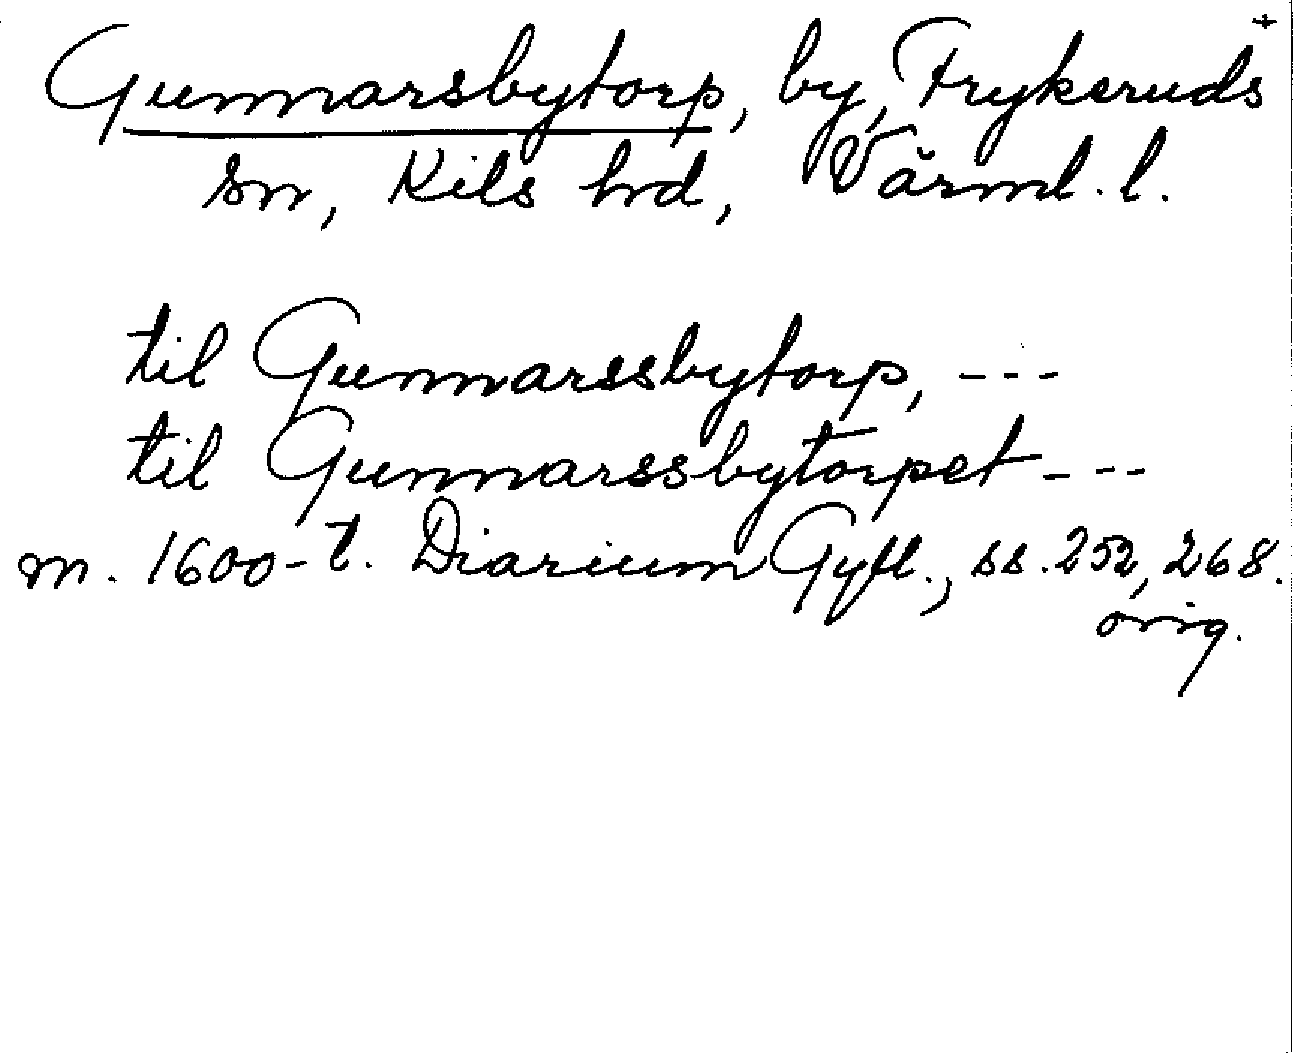 +
Gunnarsbytorp, by, Frykeruds
sn, Kils hd, Värml. l.
til Gunnarssbytorp, ---
til Gunnarssbytorpet ---
m. 1600-t. Diarium Gyll., ss. 252, 268.
orig.